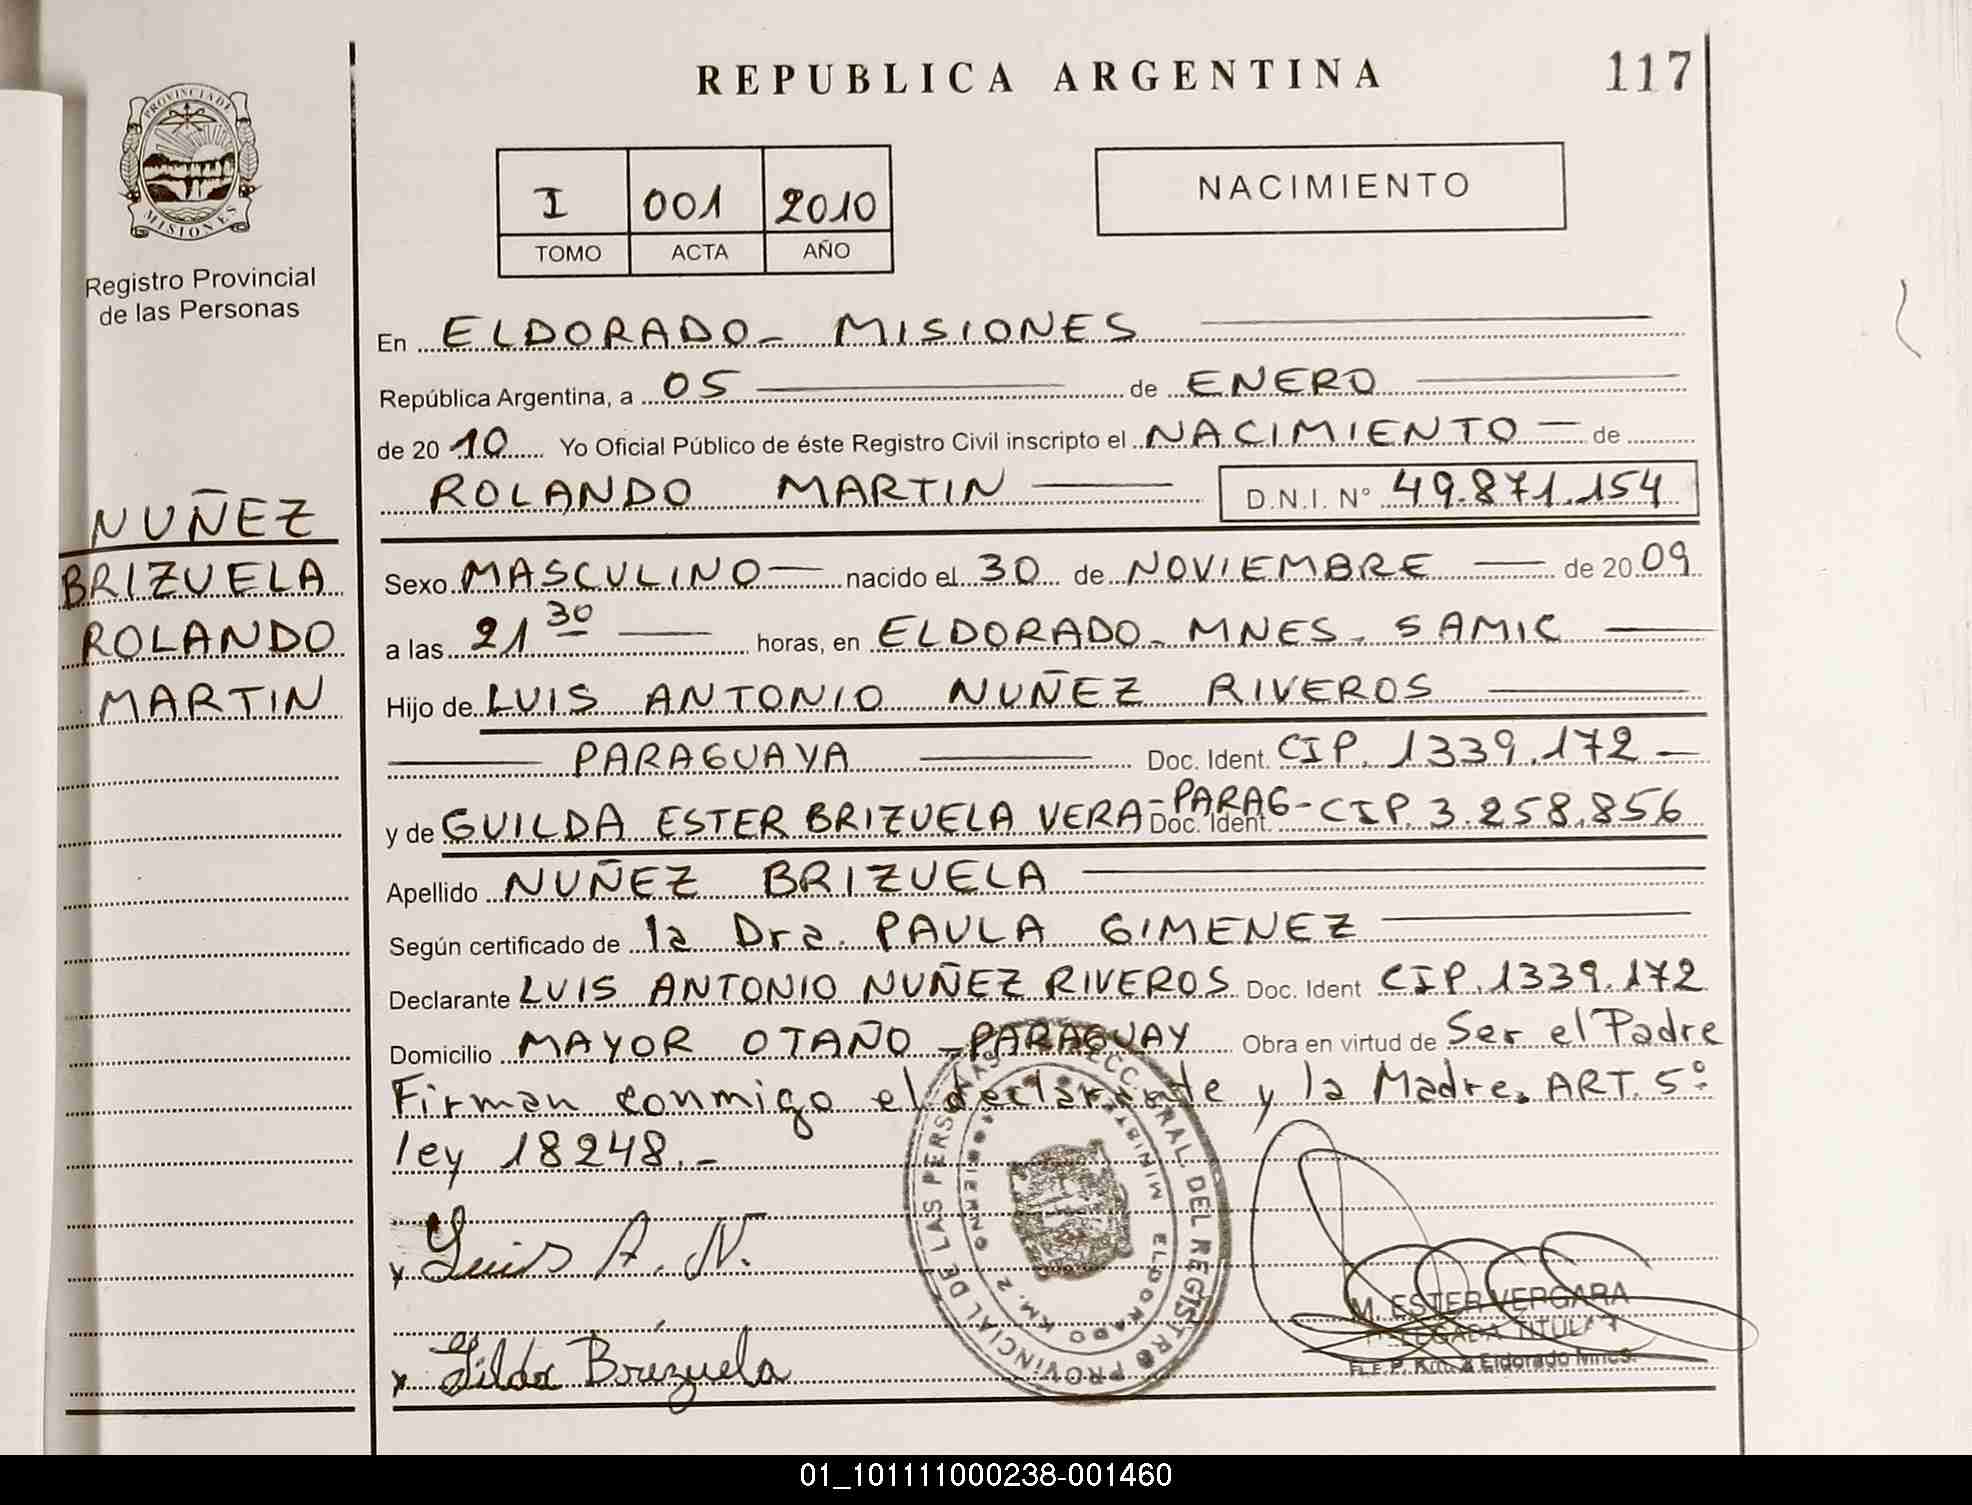 REPUBLICA ARGENTINA
117
PROVINCIA DE
MISIONES
Registro Provincial
de las Personas
I 001 2010
TOMO ACTA AÑO
NACIMIENTO
En ELDORADO - MISIONES
República Argentina, a 05 de ENERO
de 2010 Yo Oficial Público de éste Registro Civil inscripto el NACIMIENTO — de
ROLANDO MARTIN — D.N.I. N° 49.871.154
NUÑEZ
BRIZUELA
ROLANDO
MARTIN
Sexo MASCULINO — nacido el 30 de NOVIEMBRE — de 2009
a las 21 30 — horas, en ELDORADO - MNES - SAMIC —
Hijo de LUIS ANTONIO NUÑEZ RIVEROS —
— PARAGUAYA — Doc. Ident. CIP. 1339.172 —
y de GUILDA ESTER BRIZUELA VERA - PARAG - Doc. Ident. CIP. 3.258.856
Apellido NUÑEZ BRIZUELA —
Según certificado de la Dra. PAULA GIMENEZ —
Declarante LUIS ANTONIO NUÑEZ RIVEROS Doc. Ident CIP. 1339.172
Domicilio MAYOR OTAÑO - PARAGUAY Obra en virtud de Ser el Padre
Firman conmigo el declarante y la Madre. ART. 5°
ley 18248.-
x Luis A. N.
x Gilda Brizuela
DEL REGISTRO PROVINCIAL DE LAS PERSONAS
ELDORADO KM. 2
M. ESTER VERGARA
01_101111000238-001460